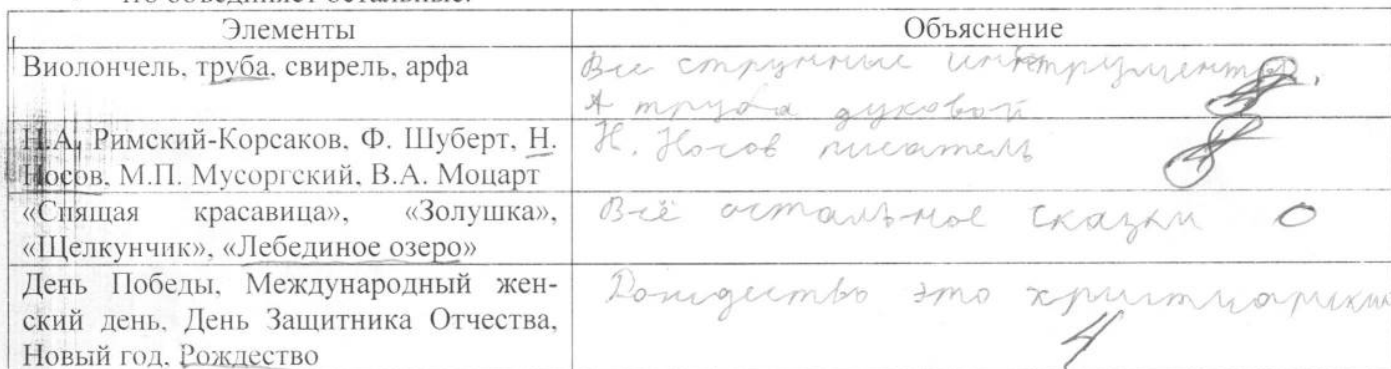 что объединяет остальные.
Элементы Объяснение
Виолончель, труба, свирель, арфа
Все струнные инструменты.
А труба духовой
Н.А. Римский-Корсаков, Ф. Шуберт, Н.
Носов, М.П. Мусоргский, В.А. Моцарт
Н. Носов писатель
«Спящая красавица», «Золушка»,
«Щелкунчик», «Лебединое озеро»
Всё остальное сказки 0
День Победы, Международный жен-
ский день, День Защитника Отчества,
Новый год, Рождество
Рождество это
4